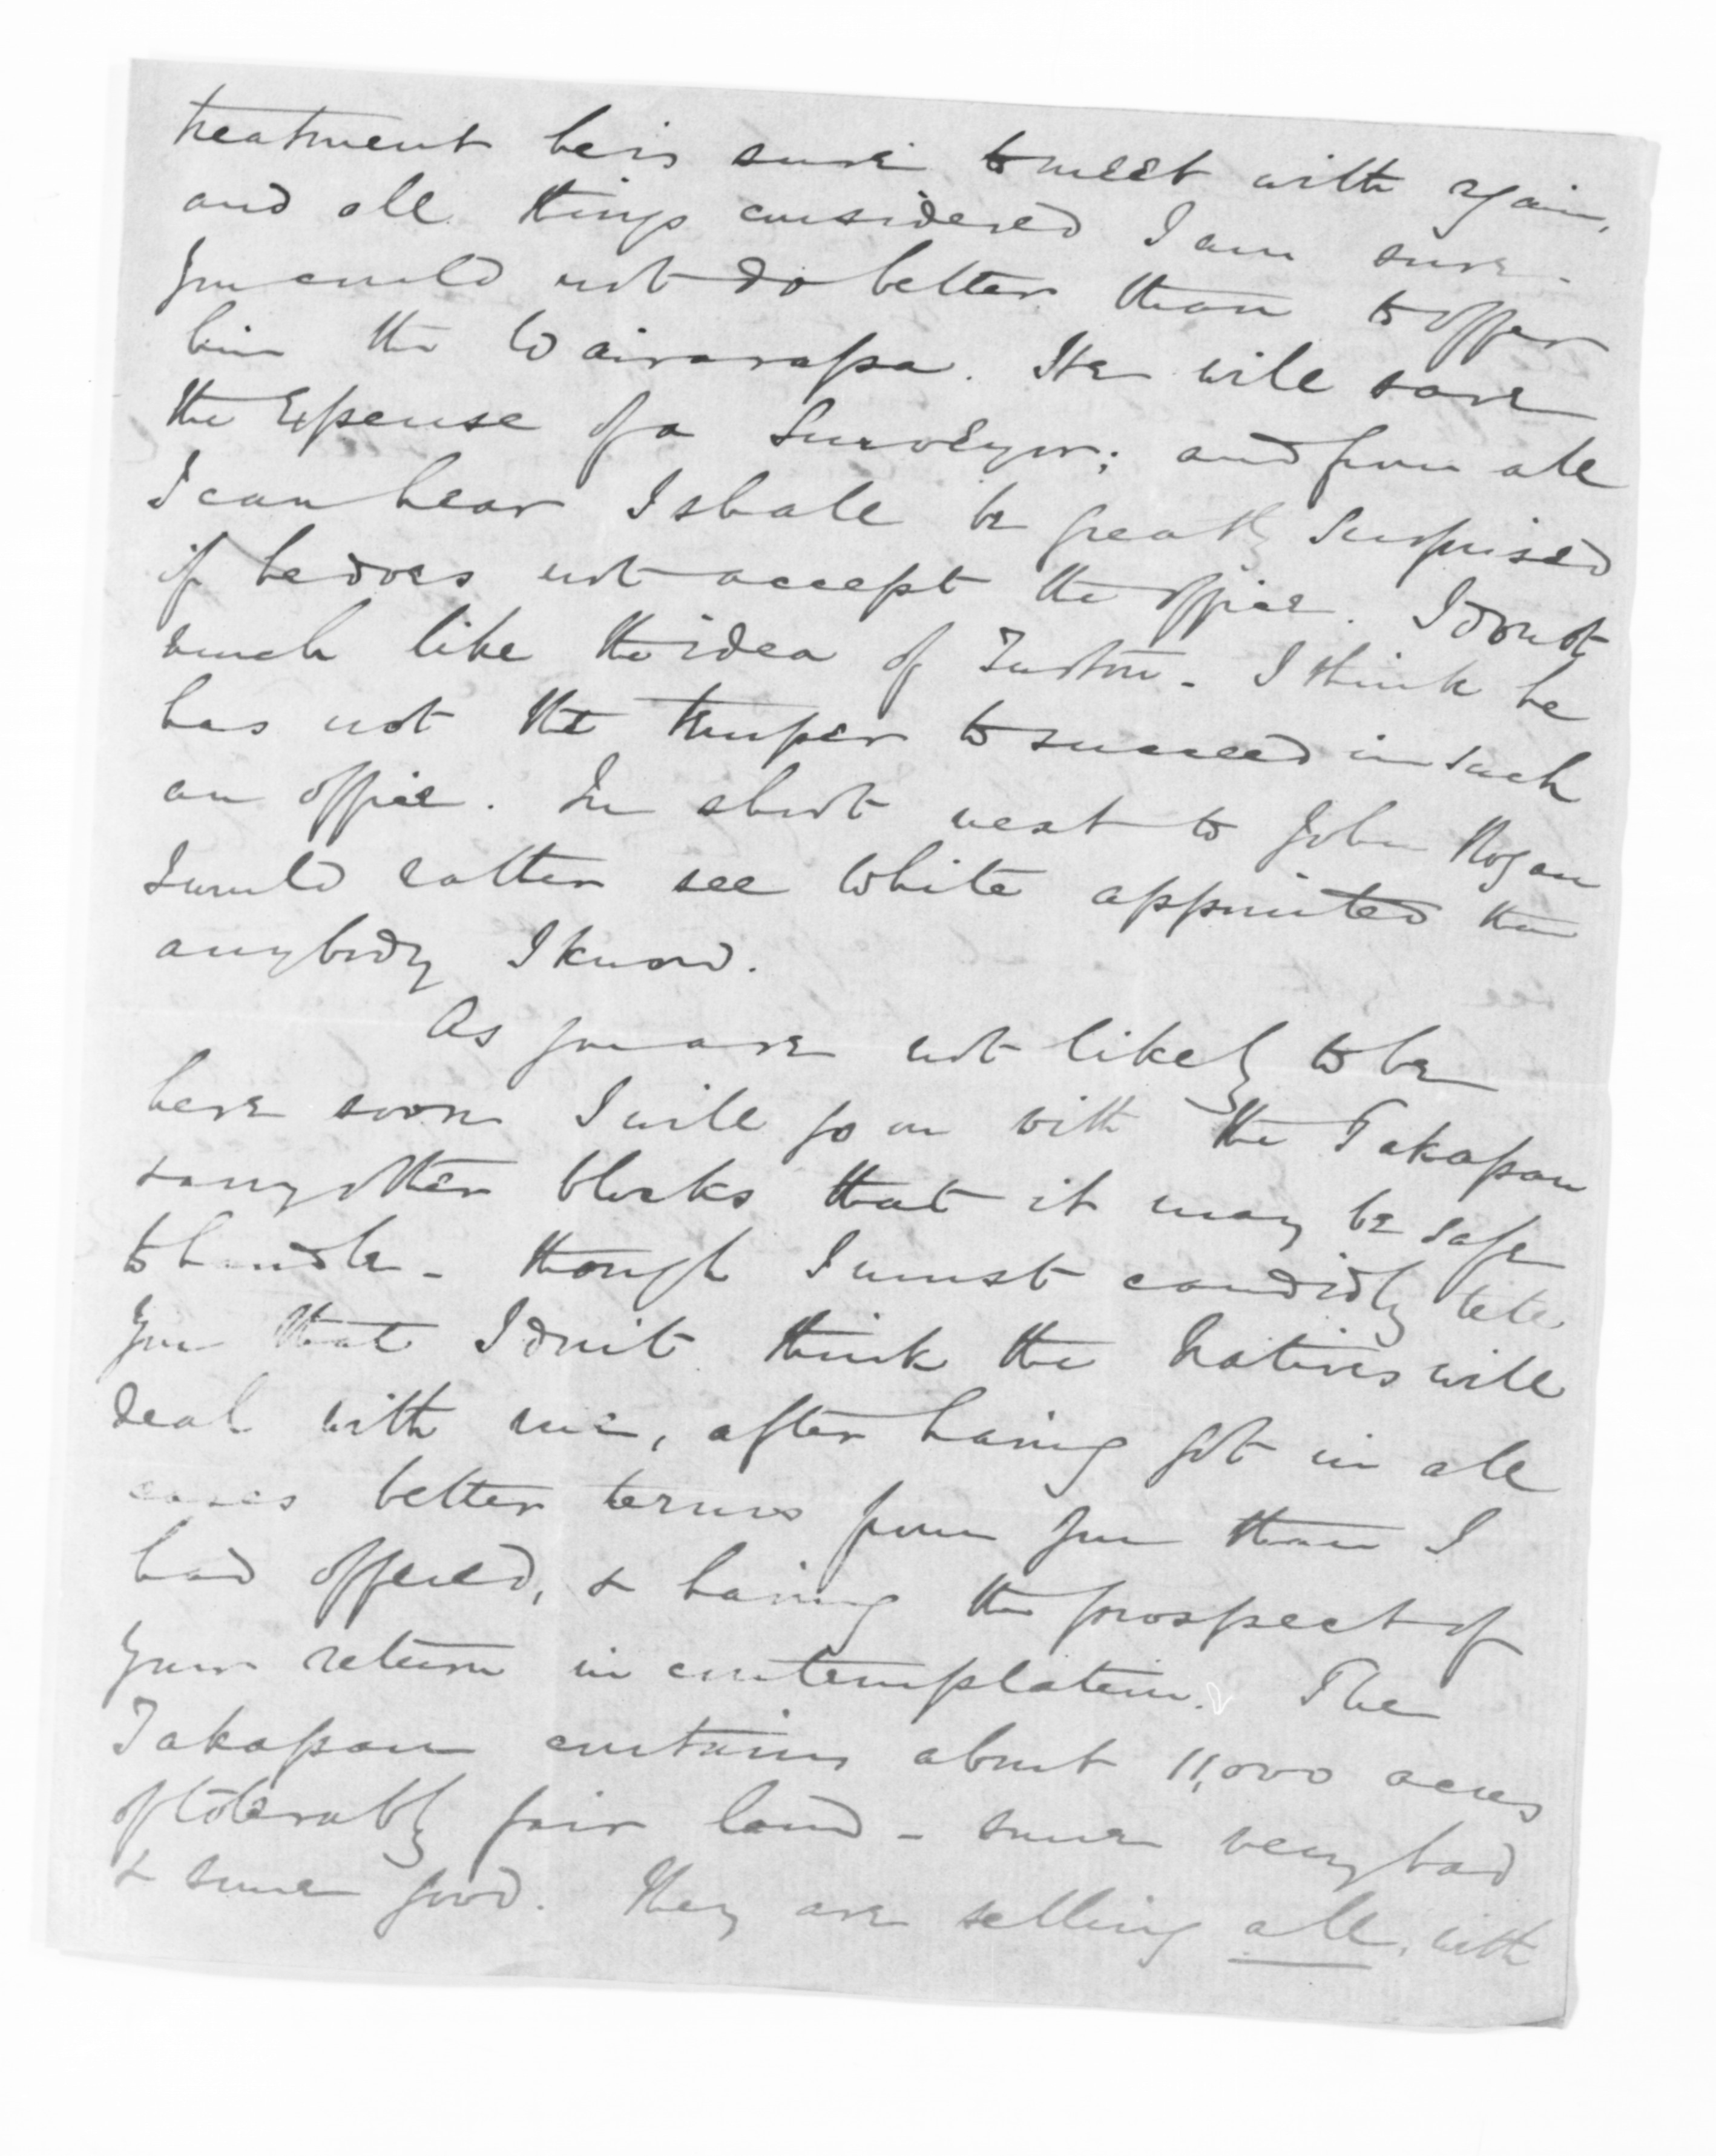 treatment he is sure to meet with again,
and all things considered I am sure
you could not do better than to offer
him the Wairarapa. He will save
the expense of a Surveyor; and from all
I can hear I shall be greatly surprised
if he does not accept the office. I do not
much like the idea of Turton - I think he
has not the temper to succeed in such
an office. In short next to John Rogan
I would rather see White appointed than
anybody I know.
As you are not likely to be
here soon I will go on with the Takapau
& any other blocks that it may be safe
to handle - though I must candidly tell
you that I don't think the Natives will
deal with me, after having got in all
cases better terms from you than I
had offered, & having the prospect of
your return in contemplation. The
Takapau contains about 11,000 acres
of tolerably fair land - some very bad
& some good. They are selling all, with